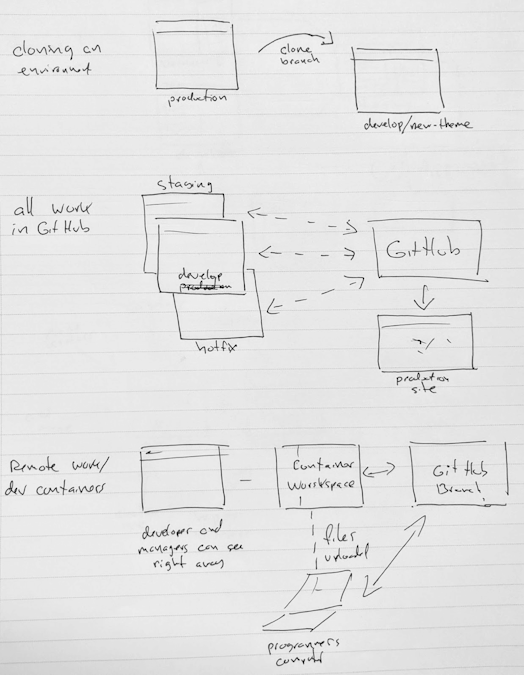 cloning an
environment
clone
branch
production
develop/new-theme
all work
in GitHub
staging
develop
production
hotfix
GitHub
production
site
Remote work/
dev containers
Container
Workspace
GitHub
Branch
developer and
managers can see
right away
files
uploaded
programmers